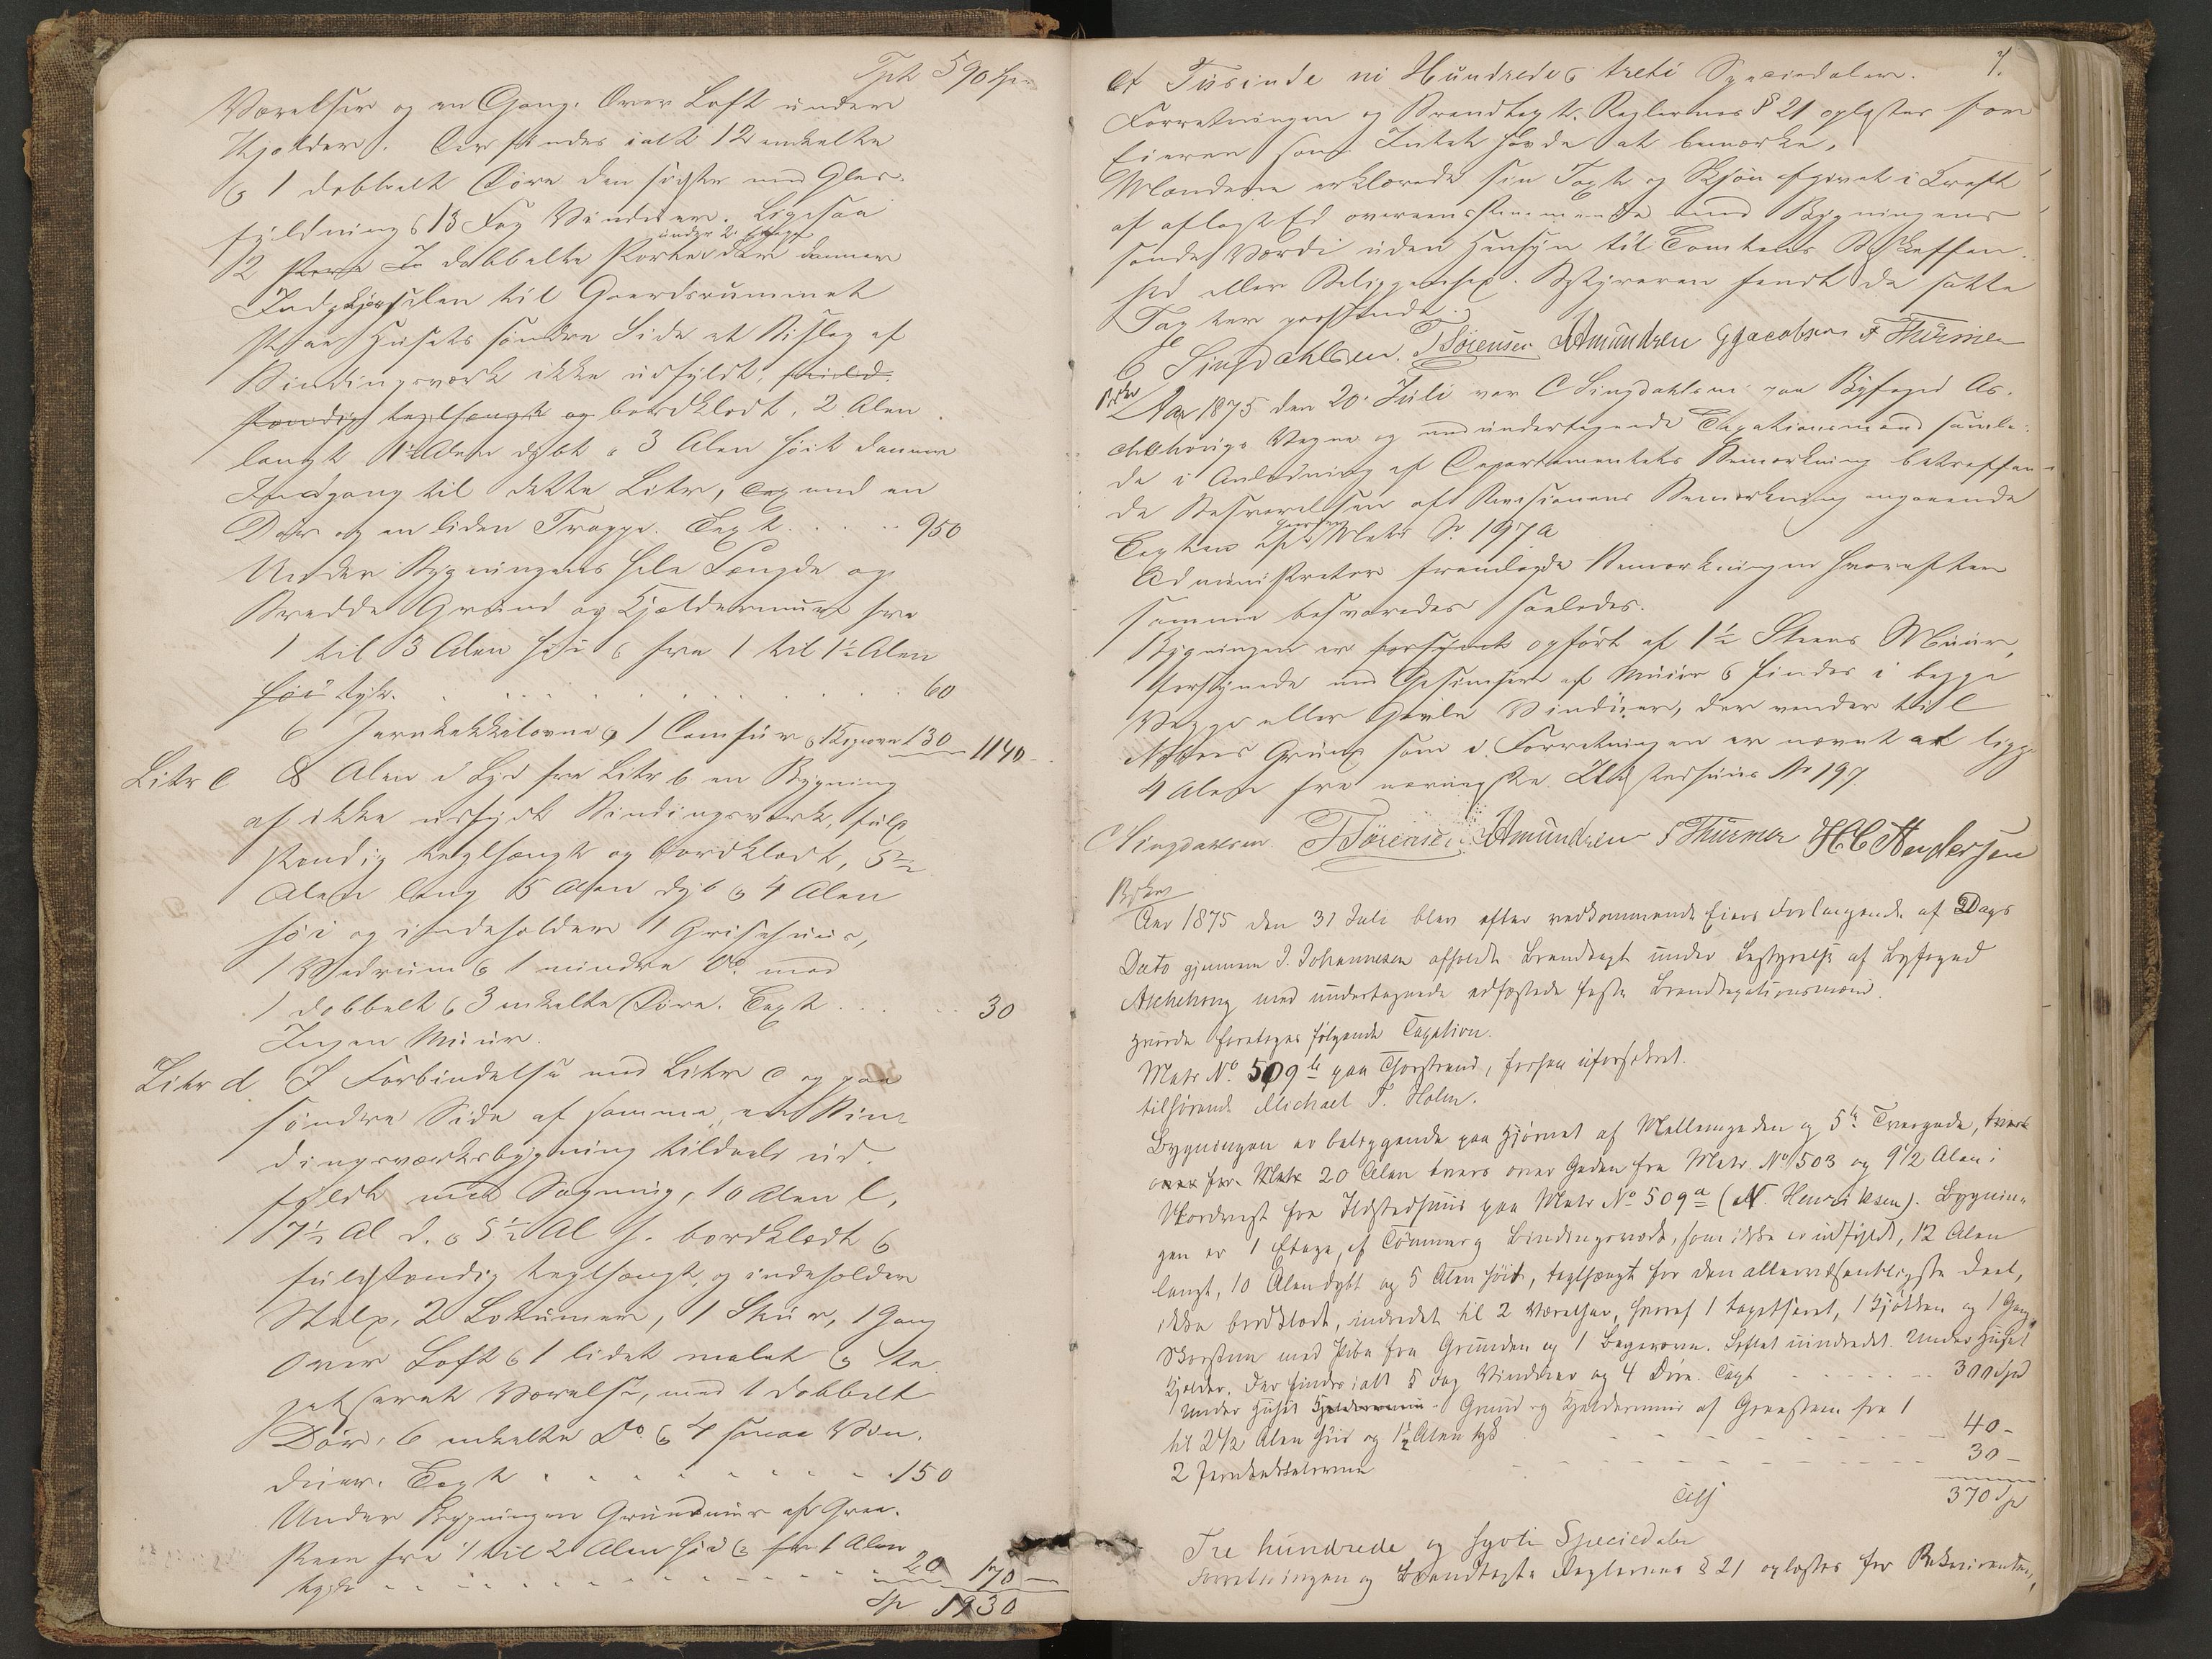 Tpt 590 Sp.
Værelser og en Gang. Over Loft under
Kjelder. Der findes ialt 12 enkelte
& 1 dobbelt Døre den sidste med Glas-
fyldning & 13 Fag Vinduer. Ligesaa
under 2. Etage
2 dobbelte Porte der danner
Indkjørselen til Gaardsrummet
Paa Husets søndre Side et Bislag af
Bindingsværk ikke udfyldt, fuld-
stændig teglhængt og bordklædt, 2 Alen
langt 1½ Alen dybt & 3 Alen høit danner
Indgang til dette Litr, med en
Dør og en liden Trappe. Taxt . . . . . 950
Under Bygningens hele Længde og
Bredde Grund og Kjældermuur fra
1 til 3 Alen høi & fra 1 til 1½ Alen
høi tyk. . . . . . . . . . . 60
6 Jernkakkelovne & 1 Comfur & 1 Bagerovn 130 1140 -
Litr c 8 Alen i Syd fra Litr b en Bygning
af ikke udfyldt Bindingsværk, fuld-
stændig teglhængt og bordklædt, 5½
Alen lang 5 Alen dyb & 4 Alen
høi og indeholder 1 Grisehuus,
1 Vedrum & 1 mindre Do med
1 dobbelt & 3 enkelte Døre. Taxt . . . . . 30
Ingen Muur.
Litr d I Forbindelse med Litr c og paa
søndre Side af samme, en Bin-
dingsværksbygning tildeels ud-
fyldt med Sagmug, 10 Alen l,
7½ Al d. & 5½ Al h. bordklædt &
fuldstændig teglhængt, og indeholder
Stald, 2 Lokummer, 1 Skuur, 1 Gang
Over Loft & 1 lidet malet & ta-
petseret Værelse, med 1 dobbelt
Dør, 6 enkelte Do & 4 smaa Vin-
duer. Taxt . . . . . . . . 150
Under Bygningen Grundmuur af Graa-
steen fra 1 til 2 Alen høi & fra 1 Alen
tyk . . . . . . . . . . 20 170 —
Sp 1930
7.
Et Tusinde ni Hundrede & treti Speciedaler.
Forretningen og Brandtaxt. Reglernes § 21 oplæstes for
Eieren som Intet havde at bemærke.
Mændene erklærede sin Taxt og Skjøn afgivet i Kraft
af aflagt Ed overeensstemmende med Bygningens
sande Værdi uden Hensyn til Tomtens Beskaffen-
hed eller Beliggenhed. Bestyreren fandt de satte
Taxter passende.
C Lingdahlsen. T Sørensen Amundsen G Jacobsen F Thürmer
Aar 1875 den 20. Juli var C Lingdahlsen paa Byfoged As-
chehougs Vegne og med undertegnede Taxationsmænd samle-
de i Anledning af Departementets Bemærkning betræffen-
de Besvarelsen af Revisionens Bemærkning angaaende
Taxten af Matr No 197a
Administrator fremlagde Bemærkningen hvorefter
samme besvaredes saaledes.
Bygningen er opført af 1½ Steens Muur,
forsynede med Gesimser af Muur & findes i begge
Vægge eller Gavle Vinduer, der vender til
Naboens Grund som i Forretningen er nævnt at ligge
4 Alen fra nærmeste Ildstedhuus No 197
C Lingdahlsen T Sørensen Amundsen F Thürmer H C Andersen
Aar 1875 den 31 Juli blev efter vedkommende Eiers Forlangende af Dags
Dato gjennem J. Johannesen afholdt Brandtaxt under Bestyrelse af Byfoged
Aschehoug med undertegnede edfæstede faste Brandtaxationsmænd.
Hvorda foretoges følgende Taxation.
Matr No. 509b paa Torstrand, forhen uforsikret.
tilhørende Michael T. Holm.
Bygningen er beliggende paa Hjørnet af Mellemgaden og 5te Tvergade, tvers
over for Matr 20 Alen tvers over Gaden fra Matr. No 503 og 9½ Alen i
Nordvest fra Ildstedhuus paa Matr No 509a (N. Henriksen). Bygnin-
gen er 1 Etage, af Tømmer og Bindingsværk, som ikke er udfyldt, 12 Alen
langt, 10 Alen dybt og 5 Alen høit, teglhængt for den allervæsentligste Deel,
ikke bordklædt, indredet til 2 Værelser, hvoraf 1 tapetseret, 1 Kjøkken og 1 Gang
Skorsteen med Pibe fra Grunden og 1 Bagerovn. Loftet uindredet. Under Huset
Kjelder. Der findes ialt 5 Fag Vinduer og 4 Døre. Taxt - - - - - - 300 Spd
Under Huset Grund og Kjeldermuur af Graasteen fra 1
til 2½ Alen høi og 1½ Alen tyk - - - - - - - - 40 -
2 Jernkakkelovne - - - - - - - - 30 -
370 Sp
Tre hundrede og sytti Speciedaler
Forretningen og Brandtaxt Reglernes § 21 oplæstes for Rekvirenten,